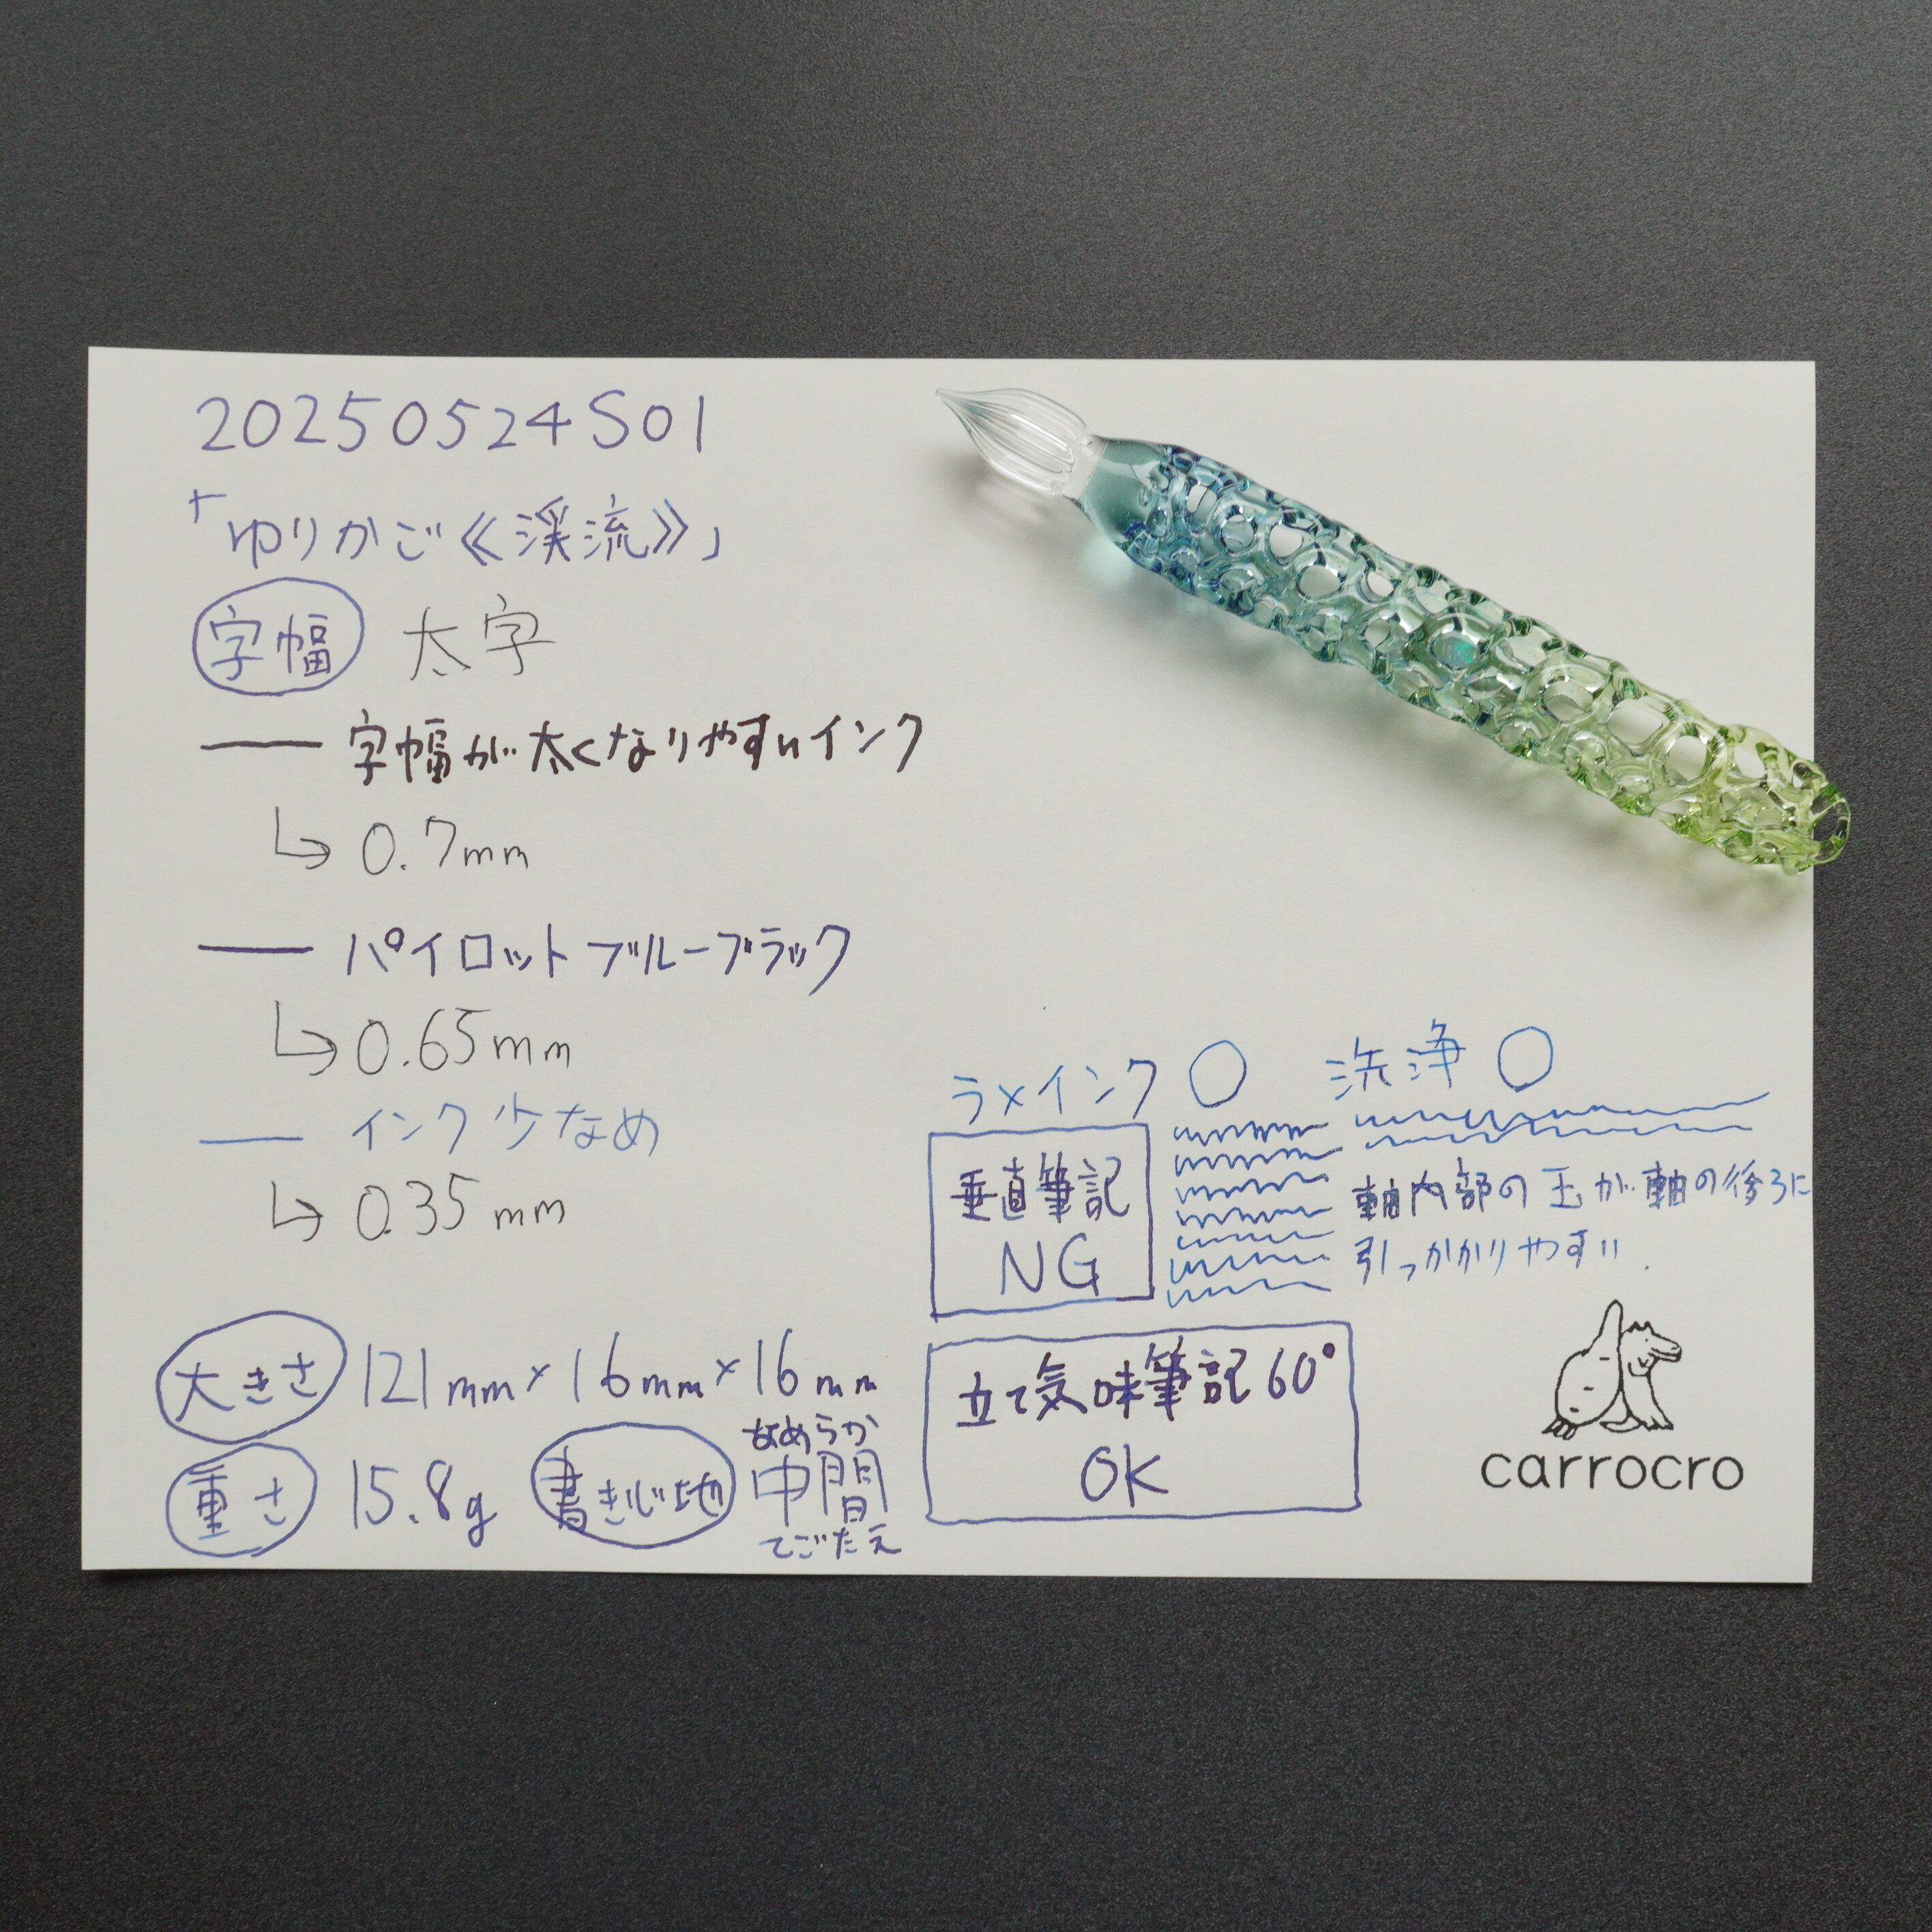 20250524S01
「ゆりかご《渓流》」
字幅 太字
字幅が太くなりやすいインク
0.7mm
パイロットブルーブラック
0.65mm
インク少なめ
0.35mm
大きさ 121mm×16mm×16mm
重さ 15.8g 書きじ地 なめらか
中間
てごたえ
ラメインク ○ 洗浄 ○
垂直筆記
NG
軸内部の玉が軸の後ろに
引っかかりやすい.
立て気味筆記60°
OK
carrocro